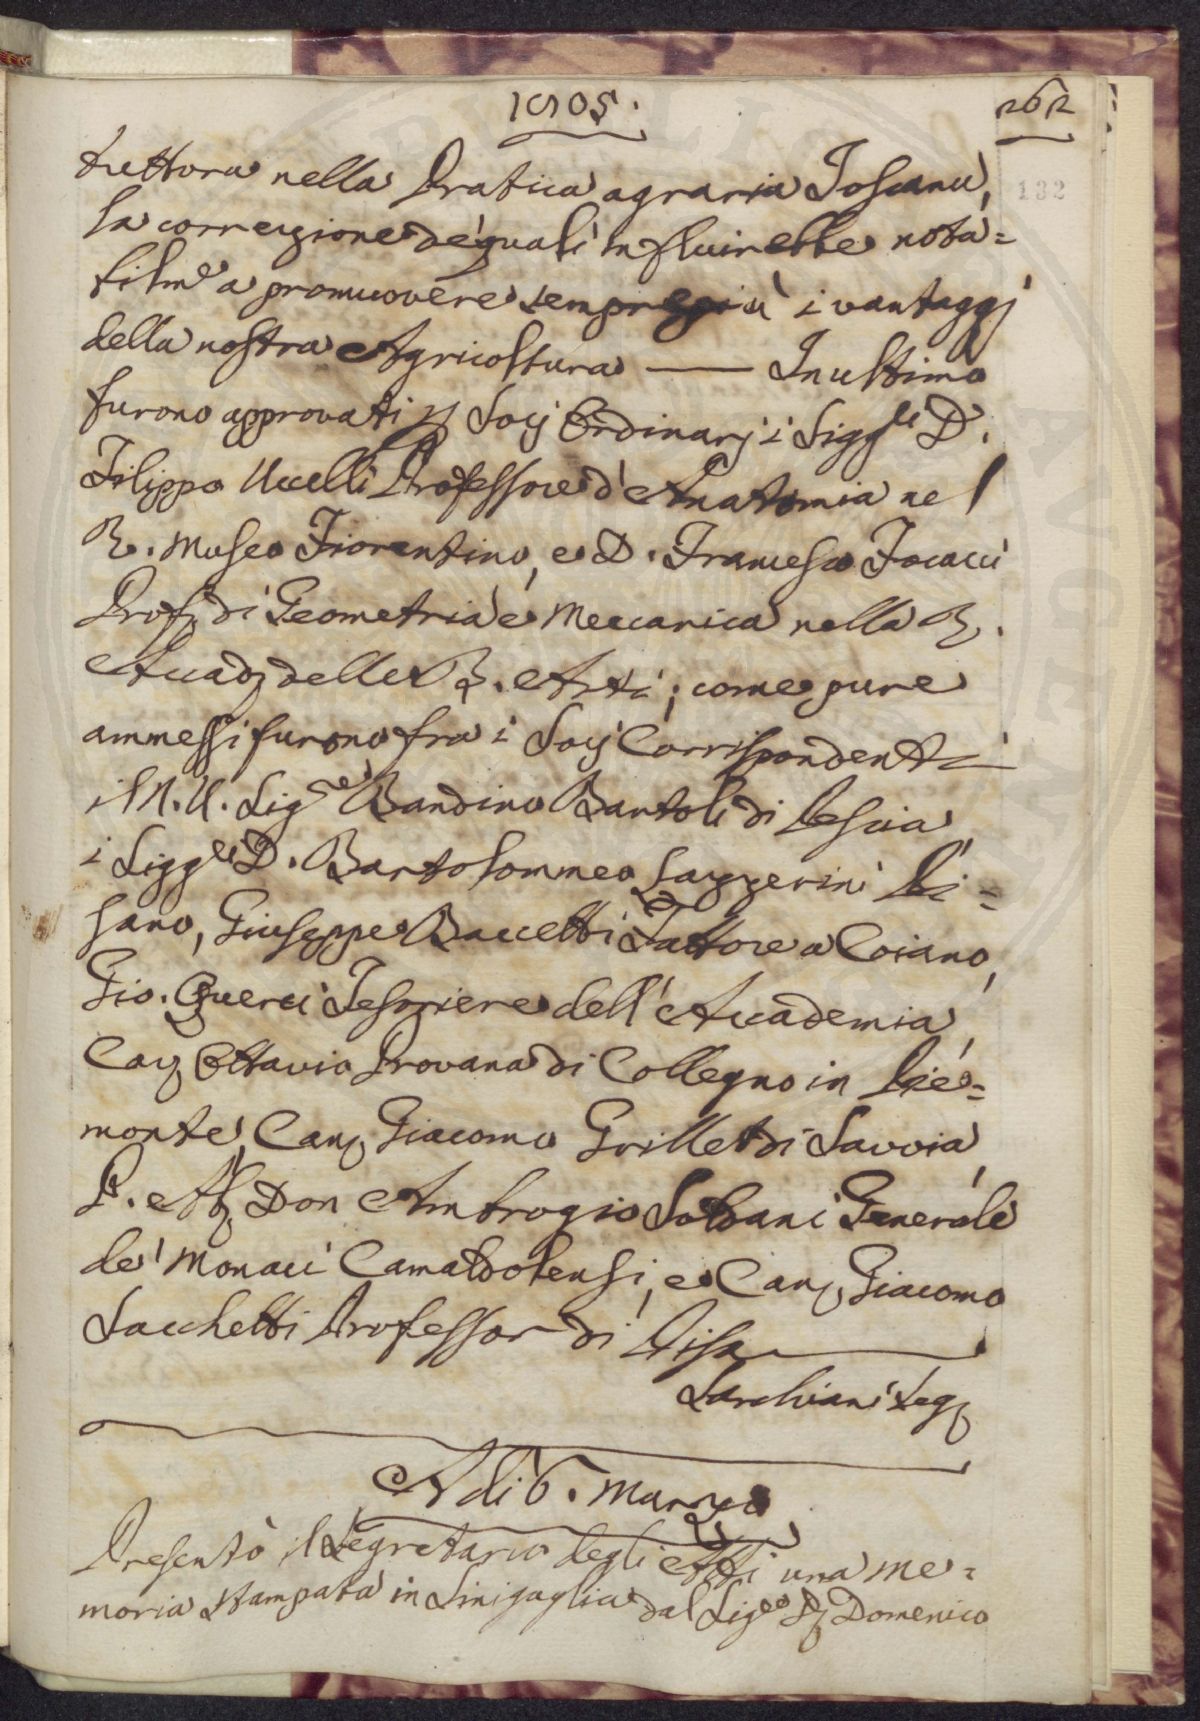 1805.
262
132
tuttora nella Pratica agraria Toscana,
la correzione de' quali influirebbe nota=
bilm.e a promuovere sempre più i vantaggj
della nostra Agricoltura —— In ultimo
furono approvati p Socj Ordinarj i Sigg.ri D.
Filippo Uccelli Professore d'Anatomia nel
R. Museo Fiorentino, e D. Francesco Focacci
Prof. di Geometria e Meccanica nella R.
Accad. delle B. Arti; come pure
ammessi furono fra i Socj Corrispondenti
il N. U. Sig.re Bandino Bartoli di Pescia,
i Sigg.ri D. Bartolommeo Lazzerini Pi=
sano, Giuseppe Baccetti Fattore a Coiano,
Gio. Querci Tesoriere dell'Accademia,
Cav. Ottavio Provana di Collegno in Pie=
monte, Can. Giacomo Grillet di Savoia,
P. Ab. Don Ambrogio Soldani Generale
de' Monaci Camaldolensi, e Can. Giacomo
Sacchetti Professor di Pisa
Sarchiani Seg.
A di 6. Marzo
Presentò il Segretario degli Atti una me=
moria stampata in Sinigaglia dal Sig.re D. Domenico